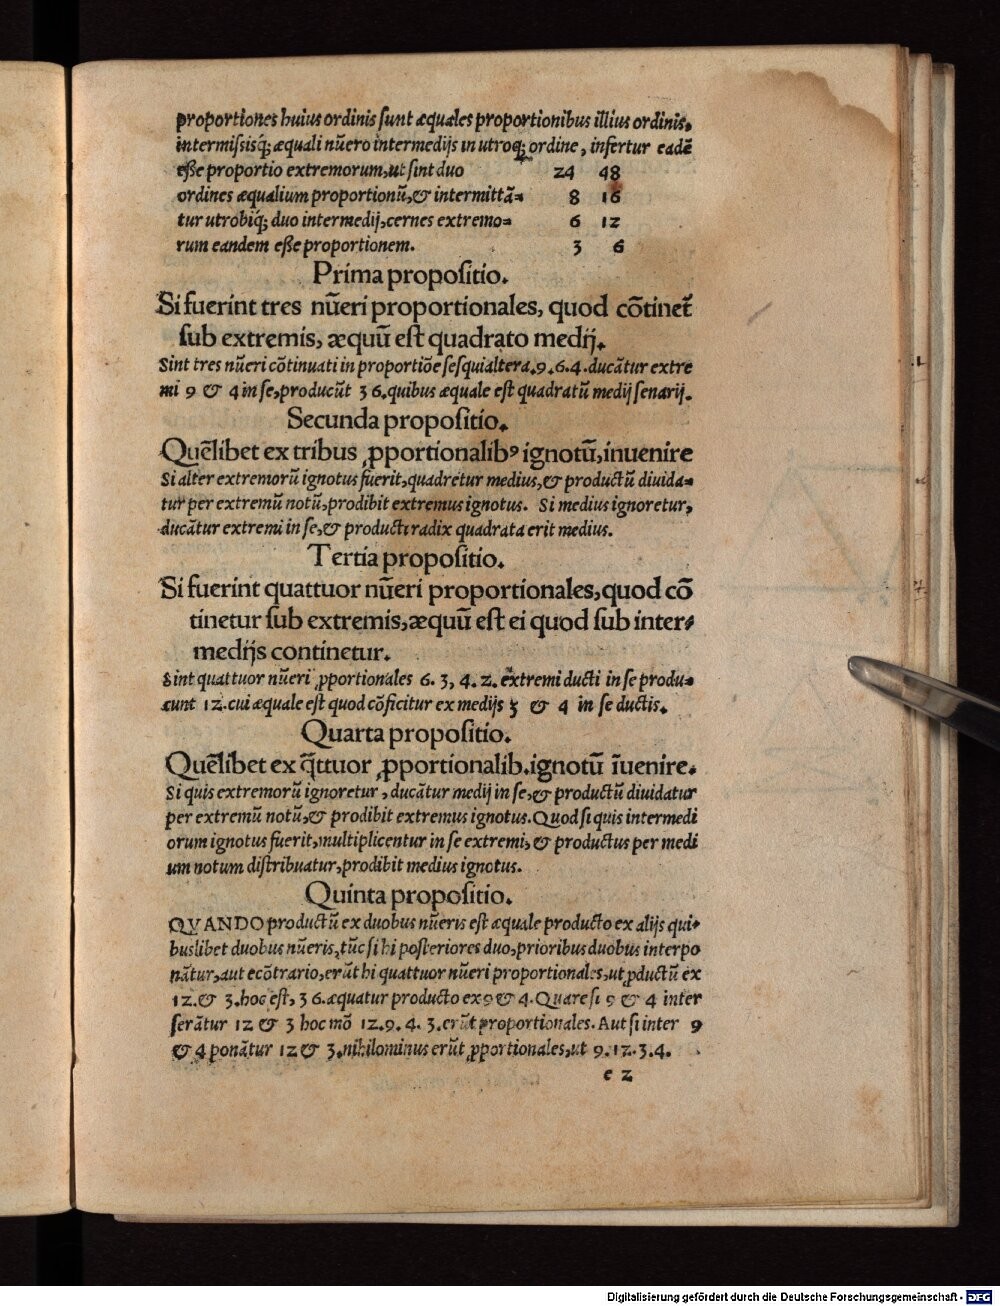 proportiones huius ordinis sunt æquales proportionibus illius ordinis,
intermissisq́; æquali nũero intermedijs in utroq; ordine, infertur eadẽ
eße proportio extremorum,ut sint duo 24 48
ordines æqualium proportionũ,& intermittã= 8 16
tur utrobiq́; duo intermedij,cernes extremo= 6 12
rum eandem eße proportionem. 3 6
Prima propositio.
Si fuerint tres nũeri proportionales, quod cõtinet̃
sub extremis, æquũ est quadrato medij.
Sint tres nũeri cõtinuati in proportiõe sesquialtera.9.6.4.ducãtur extre
mi 9 & 4 in se,producũt 36.quibus æquale est quadratũ medij senarij.
Secunda propositio.
Quẽlibet ex tribus ꝓportionalibꝰ ignotũ,inuenire
Si alter extremorũ ignotus fuerit,quadretur medius,& productũ diuida=
tur per extremũ notũ,prodibit extremus ignotus. Si medius ignoretur,
ducãtur extremi in se,& producti radix quadrata erit medius.
Tertia propositio.
Si fuerint quattuor nũeri proportionales,quod cõ
tinetur sub extremis,æquũ est ei quod sub inter=
medijs continetur.
Sint quattuor nũeri ꝓportionales 6. 3, 4. 2. extremi ducti in se produ=
cunt 12.cui æquale est quod cõficitur ex medijs 3 & 4 in se ductis.
Quarta propositio.
Quẽlibet ex q̃ttuor ꝓportionalib.ignotũ ĩuenire.
Si quis extremorũ ignoretur, ducãtur medij in se,& productũ diuidatur
per extremũ notũ,& prodibit extremus ignotus. Quod si quis intermedi
orum ignotus fuerit,multiplicentur in se extremi, & productus per medi
um notum distribuatur,prodibit medius ignotus.
Quinta propositio.
QVANDO productũ ex duobus nũeris est æquale producto ex alijs qui=
buslibet duobus nũeris,tũc si hi posteriores duo,prioribus duobus interpo
nãtur,aut ecõtrario,erũt hi quattuor nũeri proportionales,ut ꝓductũ ex
12.& 3.hoc est, 36.æquatur producto ex 9 & 4. Quare si 9 & 4 inter
serãtur 12 & 3 hoc mõ 12.9. 4. 3.erũt proportionales. Aut si inter 9
& 4 ponãtur 12 & 3.nihilominus erũt ꝓportionales,ut 9.12.3.4.
e 2
Digitalisierung gefördert durch die Deutsche Forschungsgemeinschaft - DFG